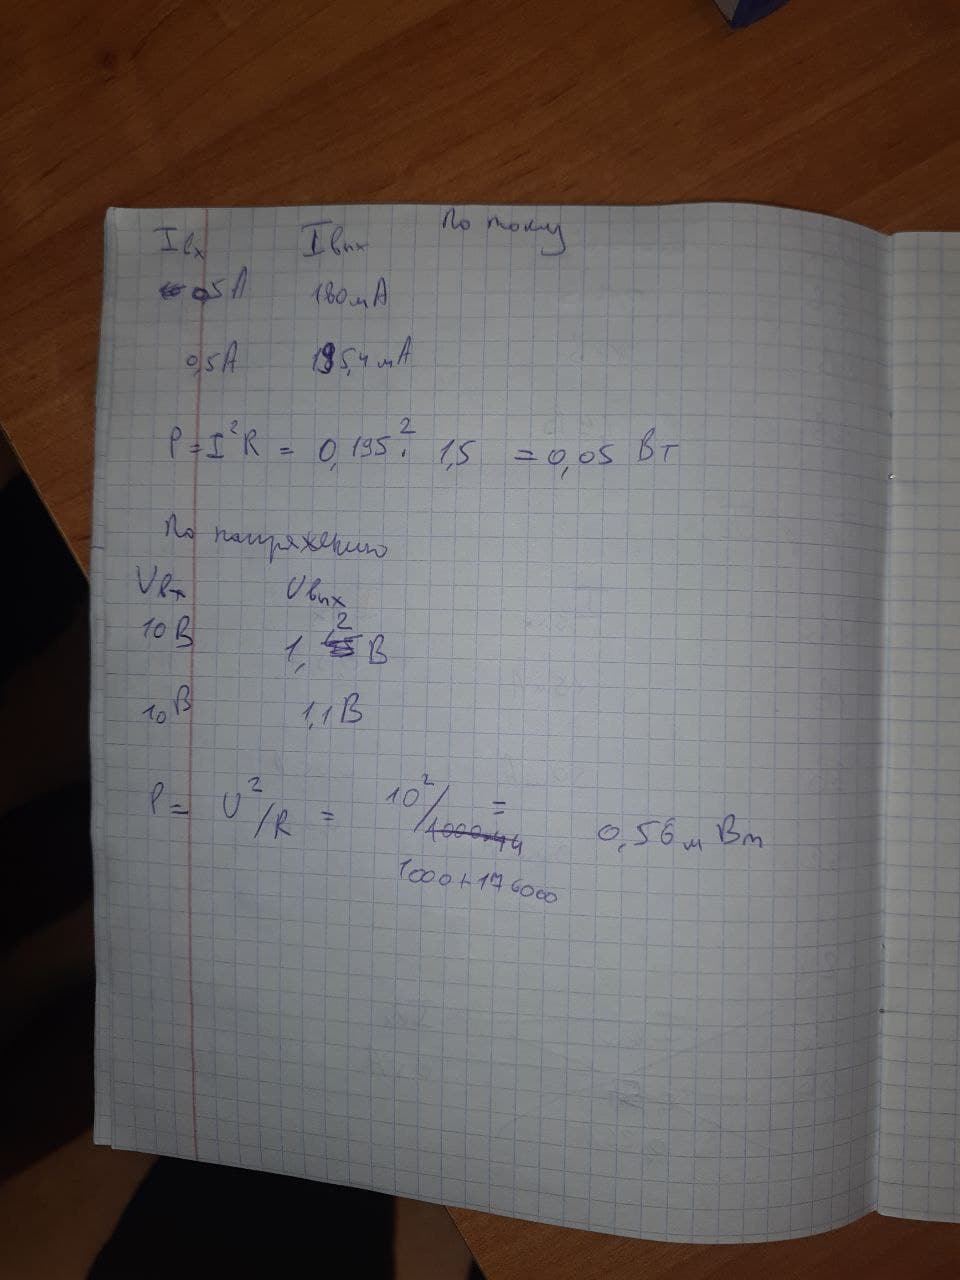 Iвх Iвых По току
0,5А 180мА
0,5А 195,4мА
P = I²R = 0,195² · 1,5 = 0,05 Вт
По напряжению
Uвх Uвых
10В 1,2 В
10В 1,1В
P = U²/R = 10²/1000+176000 = 0,56 мВт